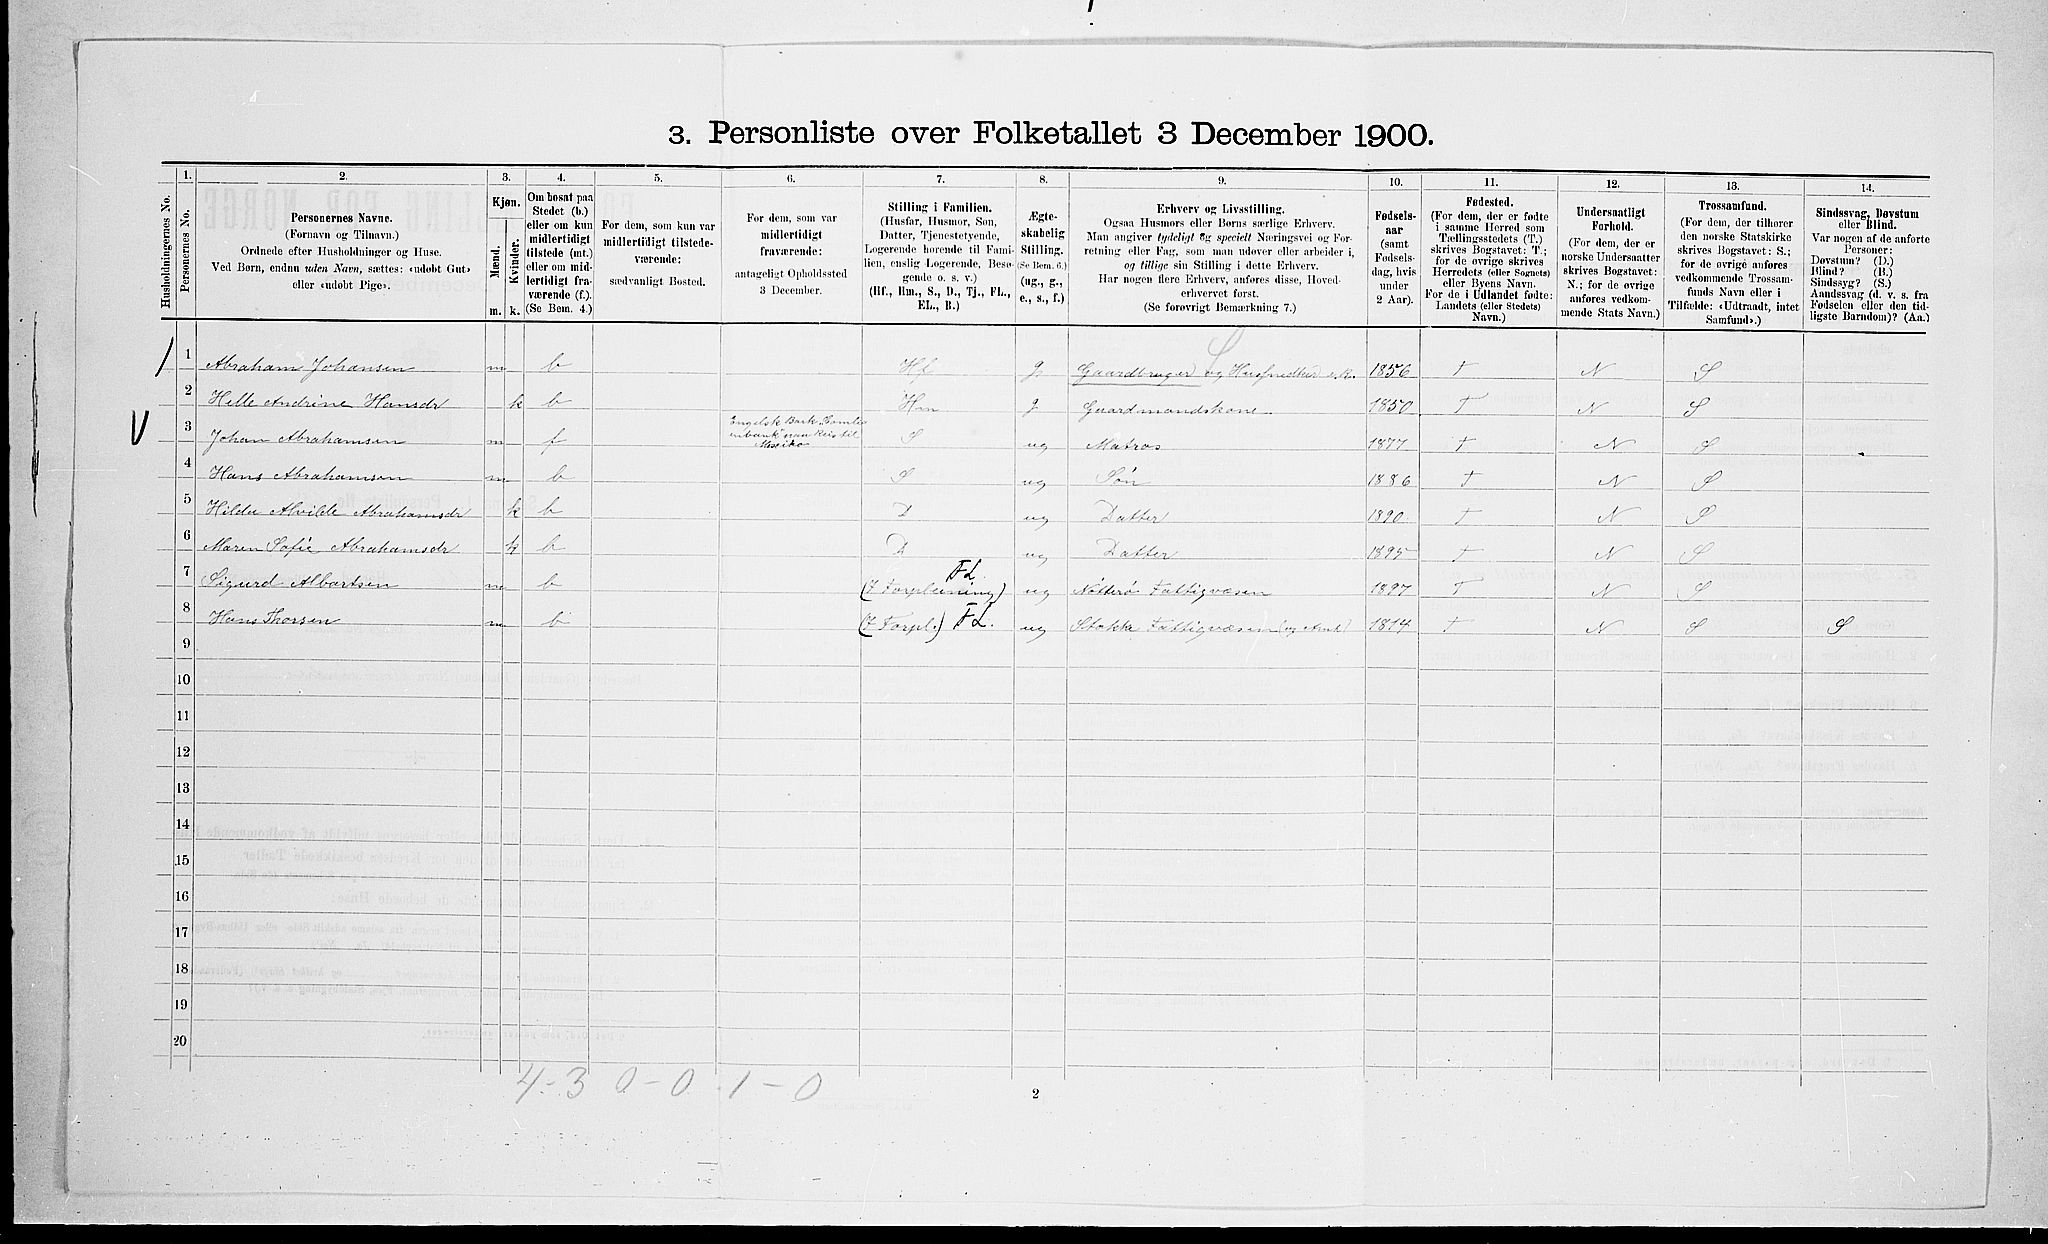 3. Personliste over Folketallet 3 December 1900.
1. 2. 3. 4. 5. 6. 7. 8. 9. 10. 11. 12. 13. 14.
Husholdningernes No.
Personernes No.
Personernes Navne.
(Fornavn og Tilnavn.)
Ordnede efter Husholdninger og Huse.
Ved Børn, endnu uden Navn, sættes: «udøbt Gut»
eller «udøbt Pige».
Kjøn.
Mænd.
Kvinder.
m. k.
Om bosat paa
Stedet (b.)
eller om kun
midlertidigt
tilstede (mt.)
eller om mid-
lertidigt fra-
værende (f.).
(Se Bem. 4.)
For dem, som kun var
midlertidigt tilstede-
værende:
sædvanligt Bosted.
For dem, som var
midlertidigt
fraværende:
antageligt Opholdssted
3 December.
Stilling i Familien.
(Husfar, Husmor, Søn,
Datter, Tjenestetyende,
Logerende hørende til Fami-
lien, enslig Logerende, Besø-
gende o. s. v.)
(Hf., Hm., S., D., Tj., FL.,
EL., B.)
Ægte-
skabelig
Stilling.
(Se Bem. 6.)
(ug., g.,
e., s., f.)
Erhverv og Livsstilling.
Ogsaa Husmors eller Børns særlige Erhverv.
Man angiver tydeligt og specielt Næringsvei og For-
retning eller Fag, som man udøver eller arbeider i,
og tillige sin Stilling i dette Erhverv.
Har nogen flere Erhverv, anføres disse, Hoved-
erhvervet først.
(Se forøvrigt Bemærkning 7.)
Fødsels-
aar
(samt
Fødsels-
dag, hvis
under
2 Aar).
Fødested.
(For dem, der er fødte
i samme Herred som
Tællingsstedets (T.)
skrives Bogstavet: T.;
for de øvrige skrives
Herredets (eller Sognets)
eller Byens Navn.
For de i Udlandet fødte:
Landets (eller Stedets)
Navn.)
Undersaatligt
Forhold.
(For dem, der er
norske Undersaatter
skrives Bogstavet:
N.; for de øvrige
anføres vedkom-
mende Stats Navn.)
Trossamfund.
(For dem, der tilhører
den norske Statskirke
skrives Bogstavet: S.;
for de øvrige anføres
vedkommende Trossam-
funds Navn eller i
Tilfælde: «Udtraadt, intet
Samfund».)
Sindssvag, Døvstum
eller Blind.
Var nogen af de anførte
Personer:
Døvstum? (D.)
Blind? (B.)
Sindssyg? (S.)
Aandssvag (d. v. s. fra
Fødselen eller den tid-
ligste Barndom)? (Aa.)
1 Abraham Johansen m b Hf g Gaardbruger og 1856 T N S
2 Helle Andrine Hansdr k b Hm g Gaardmandskone 1850 T N S
3 Johan Abrahamsen m f Engelsk Bark S ug Matros 1877 T N S
4 Hans Abrahamsen m b S ug Søn 1886 T N S
5 Hilda Alvilde Abrahamsdr k b D ug Datter 1890 T N S
6 Maren Sofie Abrahamsdr k b D ug Datter 1895 T N S
7 Sigurd Albertsen m b FL. ug Nøtterø Fattigvæsen 1897 T N S
8 Hans Thorsen m b (I Forpl.) FL. ug Stokke Fattigvæsen (og Amt) 1814 T N S S
9
10
11
12
13
14
15
16
17
18
19
20
4-3 0-0 1-0
2